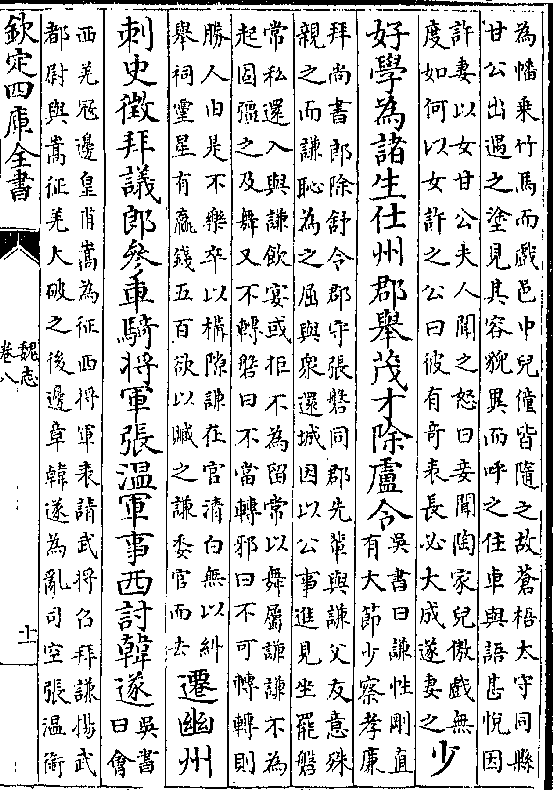 為幡乗竹馬而戲邑中兒僮皆隨之故蒼梧太守同縣
甘公出遇之塗見其容貌異而呼之住車與語甚悅因
許妻以女甘公夫人聞之怒曰妾聞陶家兒傲戲無
度如何以女許之公曰彼有竒表長必大成遂妻之
少
好學為諸生仕州郡舉茂才除盧令
吳書曰謙性剛直
有大節少察孝廉
拜尚書郎除舒令郡守張磐同郡先軰與謙父友意殊
親之而謙恥為之屈與衆還城因以公事進見坐罷磐
常私還入與謙飲宴或拒不為留常以舞屬謙謙不為
起固彊之及舞又不轉磐曰不當轉邪曰不可轉轉則
勝人由是不樂卒以構隙謙在官清白無以糾
舉祠靈星有贏錢五百欲以贓之謙委官而去
遷幽州
刺史徵拜議郎參車騎將軍張溫軍事西討韓遂
吳書
曰㑹
西羌冦邊皇甫嵩為征西將軍表請武將召拜謙揚武
都尉與嵩征羌大破之後邊章韓遂為亂司空張溫銜
欽定四庫全書
魏志
卷八
十一